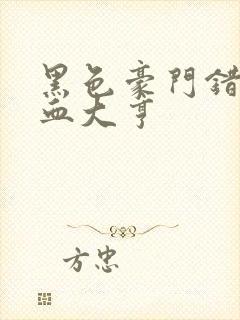 黑色豪門錯
血大亨
方忠